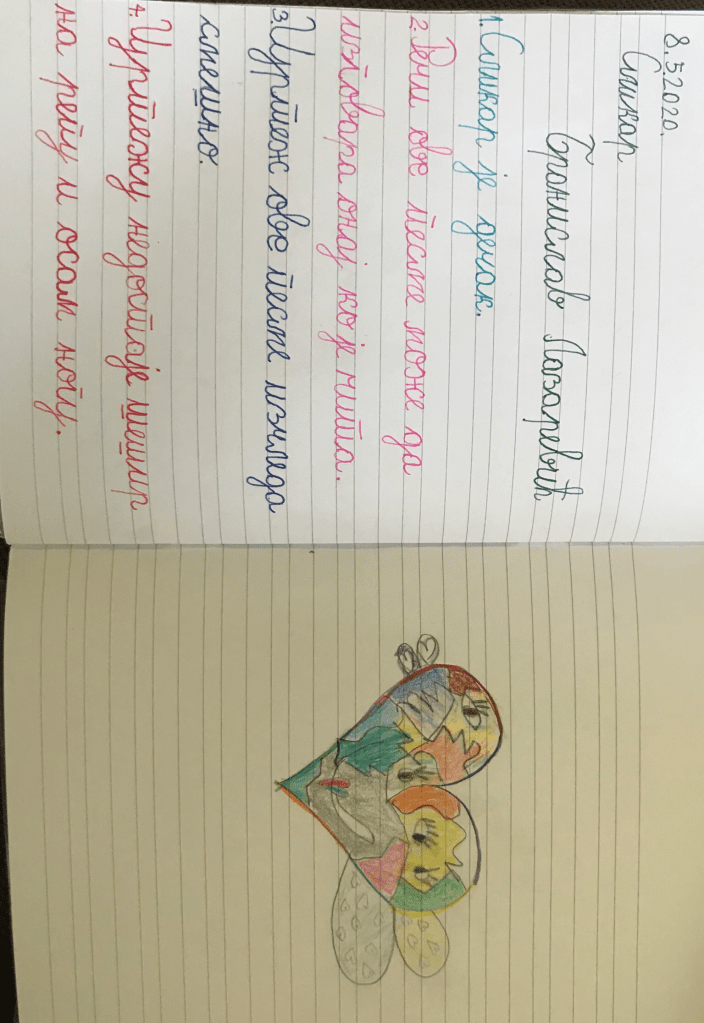 8.5.2020.
Сликар
Бранислав Лазаревић
1. Сликар је дечак.
2. Речи ове песме може да
изговара онај ко је чита.
3. Цртеж ове песме изгледа
смешно.
4. Цртежу недостаје шешир
на репу и осам ногу.